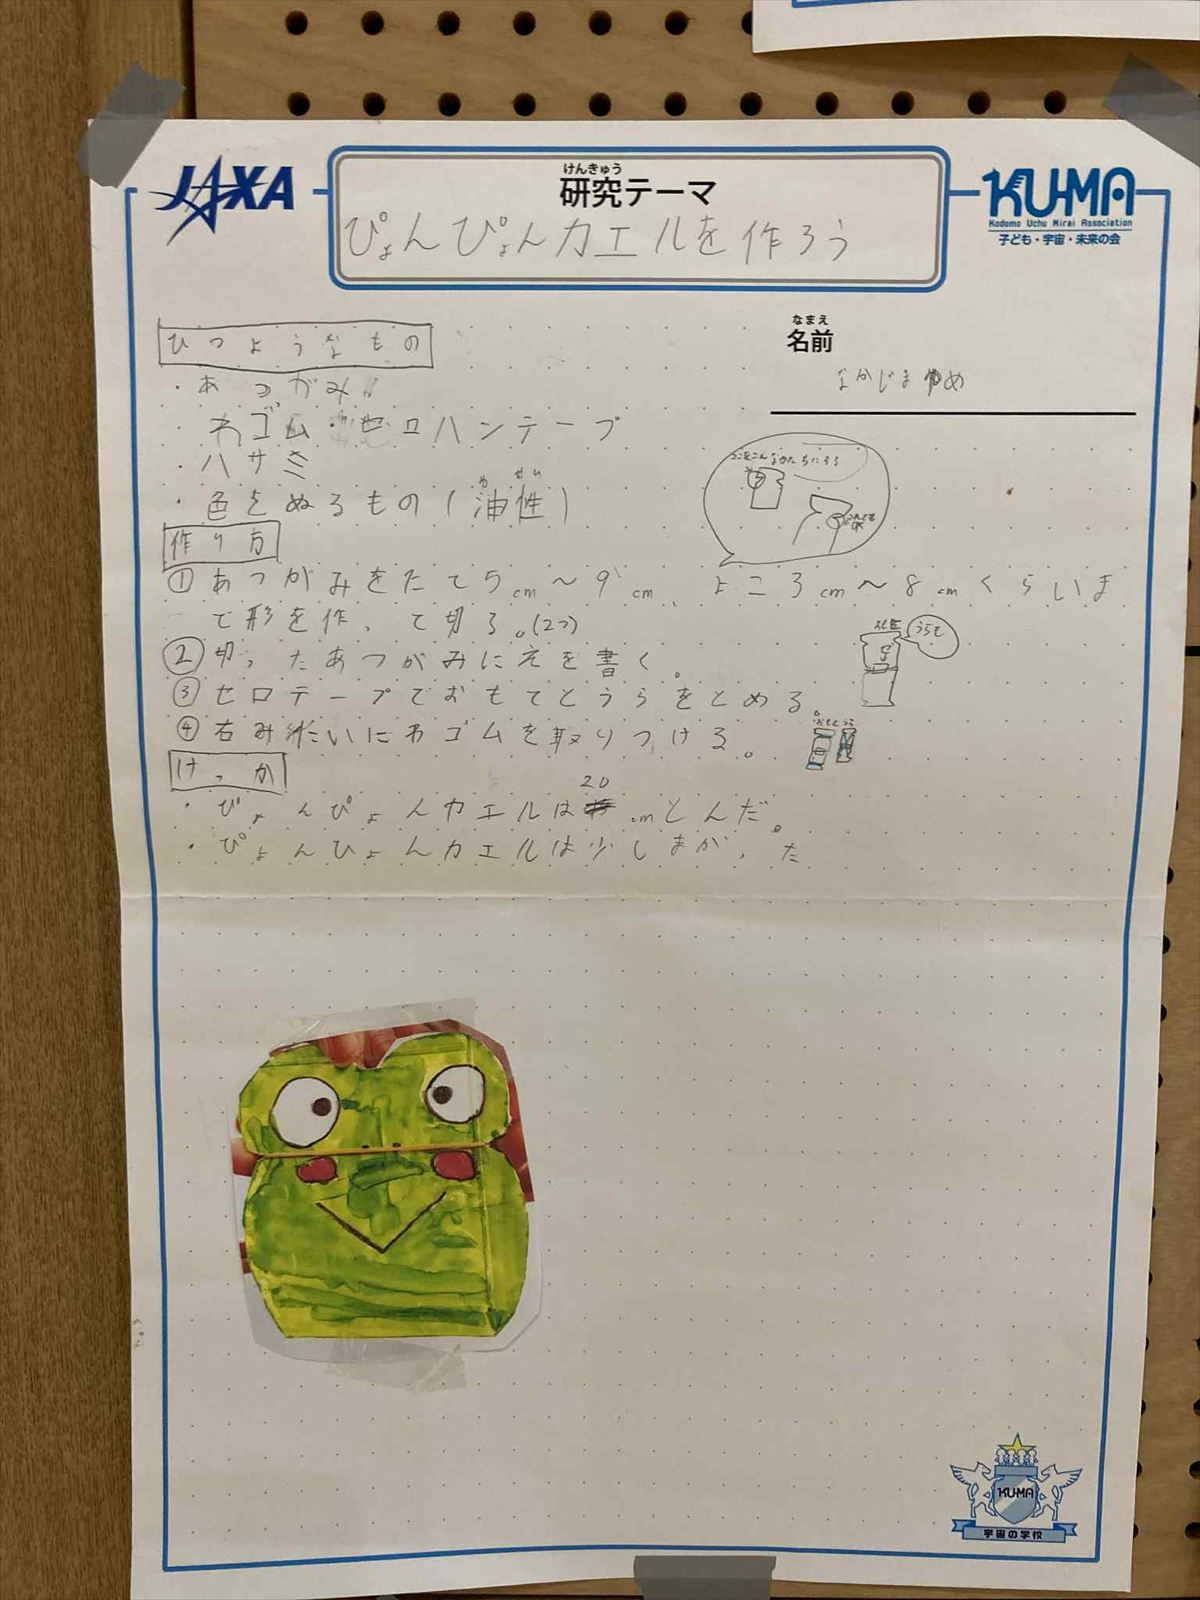 JAXA
けんきゅう
研究テーマ
ぴょんぴょんカエルを作ろう
KU-MA
Kodomo Uchu Mirai Association
子ども・宇宙・未来の会
なまえ
名前
なかじまゆめ
ひつようなもの
・あつがみ
わゴム・セロハンテープ
・ハサミ
・色をぬるもの(油性)
ゆ せい
作り方
①あつがみをたて5cm〜9cm、よこ3cm〜8cmくらいま
で形を作って切る。(2つ)
②切ったあつがみにえを書く。
うらも
③セロテープでおもてとうらをとめる。
④右みたいにわゴムを取りつける。
おもて うら
けっか
・ぴょんぴょんカエルは20cmとんだ。
・ぴょんぴょんカエルは少しまがった
KU-MA
宇宙の学校